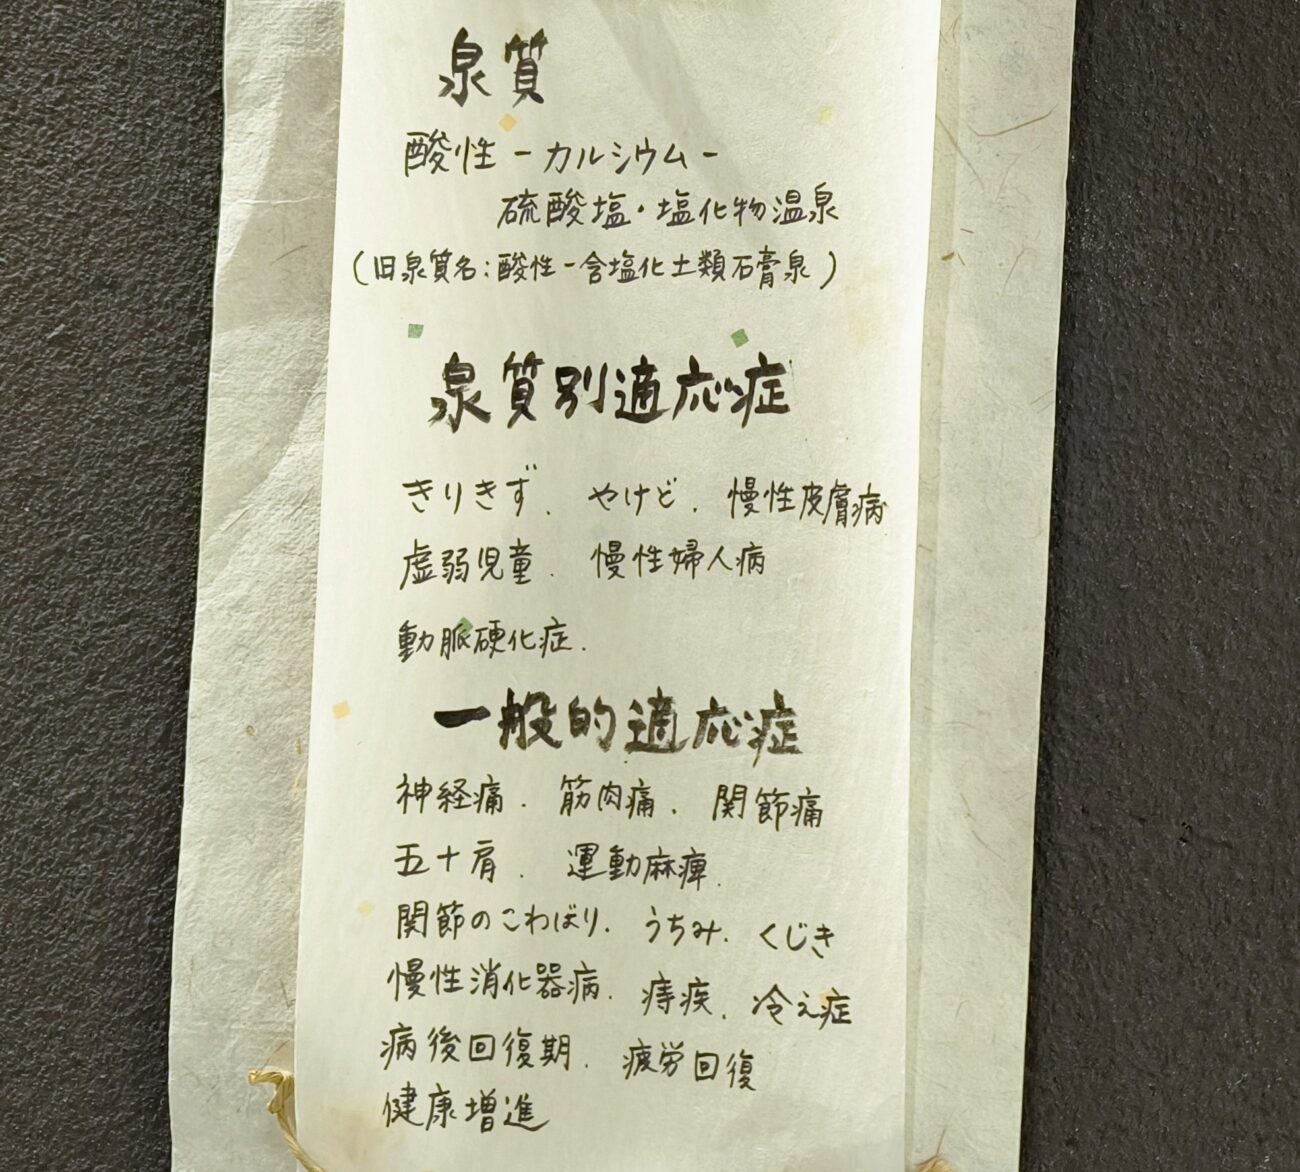 泉質
酸性－カルシウム－
硫酸塩・塩化物温泉
（旧泉質名：酸性－含塩化土類石膏泉）
泉質別適応症
きりきず、やけど、慢性皮膚病
虚弱児童、慢性婦人病
動脈硬化症、
一般的適応症
神経痛、筋肉痛、関節痛
五十肩、運動麻痺、
関節のこわばり、うちみ、くじき
慢性消化器病、痔疾、冷え症
病後回復期、疲労回復
健康増進